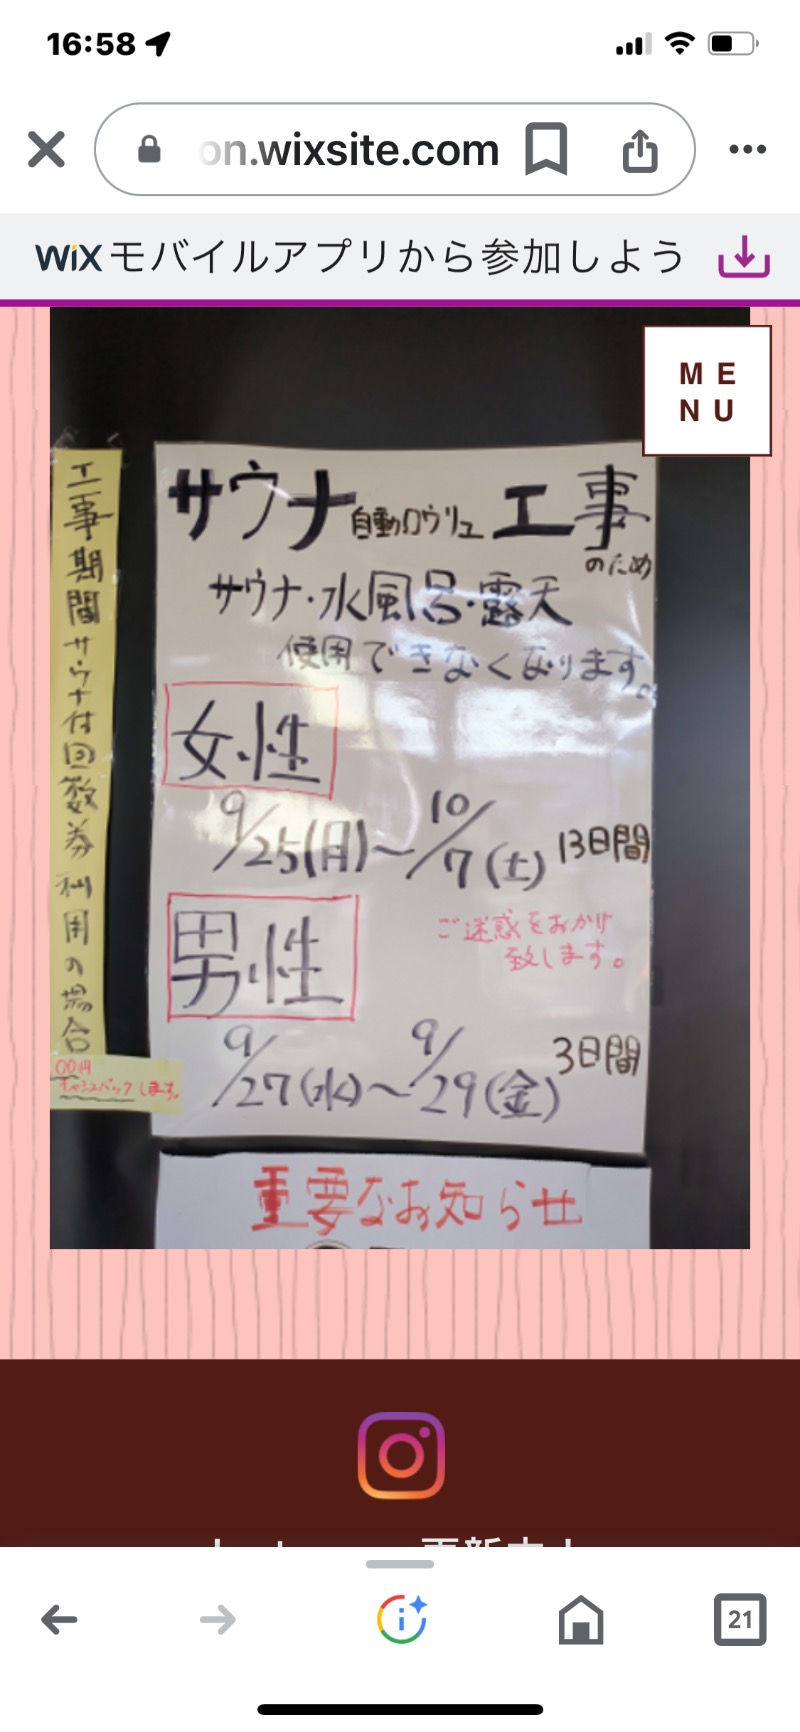 16:58
on.wixsite.com
WiX モバイルアプリから参加しよう
ME
NU
サウナ 自動ロウリュ 工事
のため
サウナ・水風呂・露天
使用できなくなります。
女性
9/25(月)~10/7(土) 13日間
男性
ご迷惑をおかけ
致します。
9/27(水)~9/29(金) 3日間
工事期間サウナ付回数券利用の場合
00円
キャッシュバックします。
重要なお知らせ
21